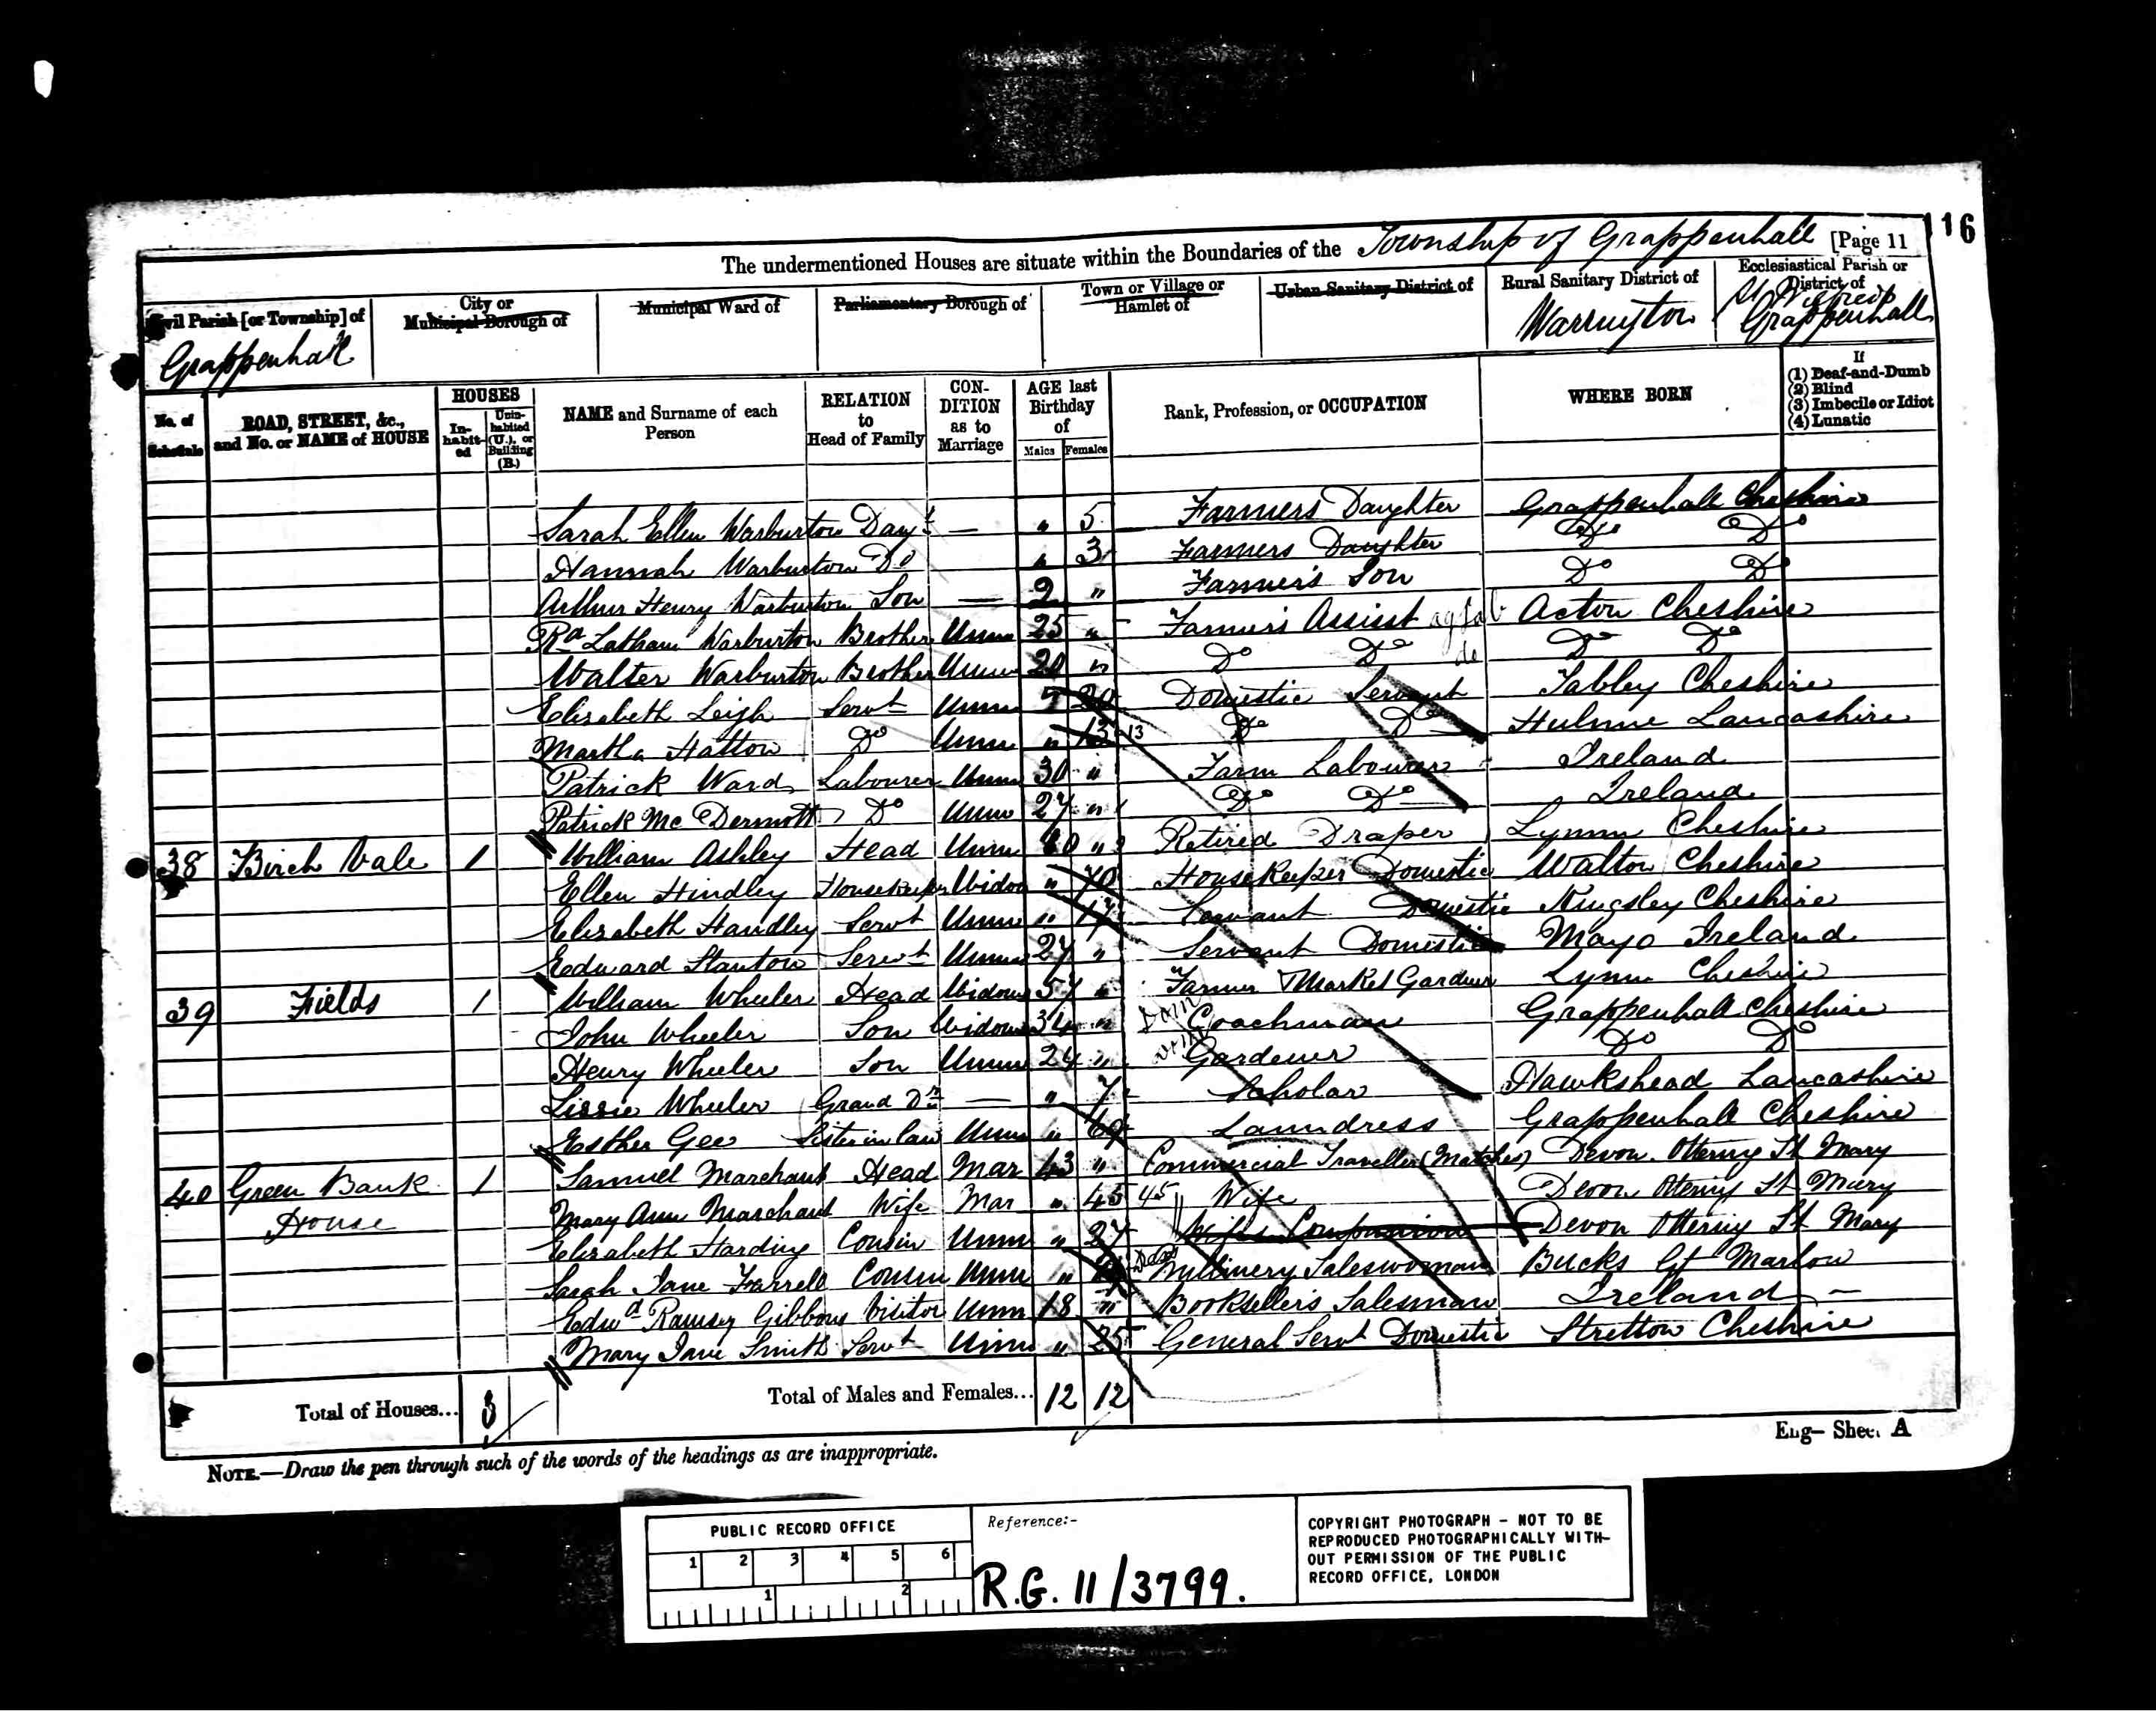 116
The undermentioned Houses are situate within the Boundaries of the Township of Grappenhall [Page 11
Civil Parish [or Township] of Grappenhall
City or Municipal Borough of
Municipal Ward of
Parliamentary Borough of
Town or Village or Hamlet of
Urban Sanitary District of
Rural Sanitary District of Warrington
Ecclesiastical Parish or District of St Wilfreds Grappenhall
No. of Schedule
ROAD, STREET, &c., and No. or NAME of HOUSE
HOUSES
In-habit-ed
Unin-habited (U.), or Building (B.)
NAME and Surname of each Person
RELATION to Head of Family
CON-DITION as to Marriage
AGE last Birthday of
Males Females
Rank, Profession, or OCCUPATION
WHERE BORN
If
(1) Deaf-and-Dumb
(2) Blind
(3) Imbecile or Idiot
(4) Lunatic
Sarah Ellen Warburton Daut — " 5 Farmers Daughter Grappenhall Cheshire
Hannah Warburton Do " 3 Farmers Daughter Do Do
Arthur Henry Warburton Son — 2 " Farmer's Son Do Do
Rd Latham Warburton Brother Unm 25 " Farmers Assist ag lab Acton Cheshire
Walter Warburton Brother Unm 20 " Do Do do Do Do
Elizabeth Leigh Servt Unm " 20 Domestic Servant Tabley Cheshire
Martha Hatton Do Unm " 13 13 Do Do Hulme Lancashire
Patrick Ward Labourer Unm 30 " Farm Labourer Ireland
Patrick Mc Dermott Do Unm 27 " Do Do Ireland
38 Birch Vale 1 William Ashley Head Unm 80 " Retired Draper Lymm Cheshire
Ellen Hindley Housekeeper Widow " 70 Housekeeper Domestic Walton Cheshire
Elizabeth Handley Servt Unm " 17 Servant Domestic Kingsley Cheshire
Edward Stanton Servt Unm 27 " Servant Domestic Mayo Ireland
39 Fields 1 William Wheeler Head Widow 57 " Farmer & Market Gardner Lymm Cheshire
John Wheeler Son Widow 34 " Dom Coachman Grappenhall Cheshire
Henry Wheeler Son Unm 24 " Dom Gardener Do Do
Lizzie Wheeler Grand Dr — " 7 Scholar Hawkshead Lancashire
Esther Gee Sister in law Unm " 69 Laundress Grappenhall Cheshire
40 Green Bank House 1 Samuel Marchant Head Mar 43 " Commercial Traveller (Matches) Devon Ottery St Mary
Mary Ann Marchant Wife Mar " 45 45 Wife Devon Ottery St Mary
Elizabeth Harding Cousin Unm " 27 Wifes Companion Devon Ottery St Mary
Sarah Jane Farrell Cousin Unm " Millinery Saleswoman Bucks Gt Marlow
Edwd Ramsey Gibbons Visitor Unm 18 " Booksellers Salesman Ireland —
Mary Jane Smith Servt Unm " 25 General Servt Domestic Stretton Cheshire
Total of Houses... 3
Total of Males and Females... 12 12
Eng— Sheet A
NOTE.—Draw the pen through such of the words of the headings as are inappropriate.
PUBLIC RECORD OFFICE
1 2 3 4 5 6
1 2
Reference:-
R.G. 11/3799.
COPYRIGHT PHOTOGRAPH - NOT TO BE
REPRODUCED PHOTOGRAPHICALLY WITH-
OUT PERMISSION OF THE PUBLIC
RECORD OFFICE, LONDON